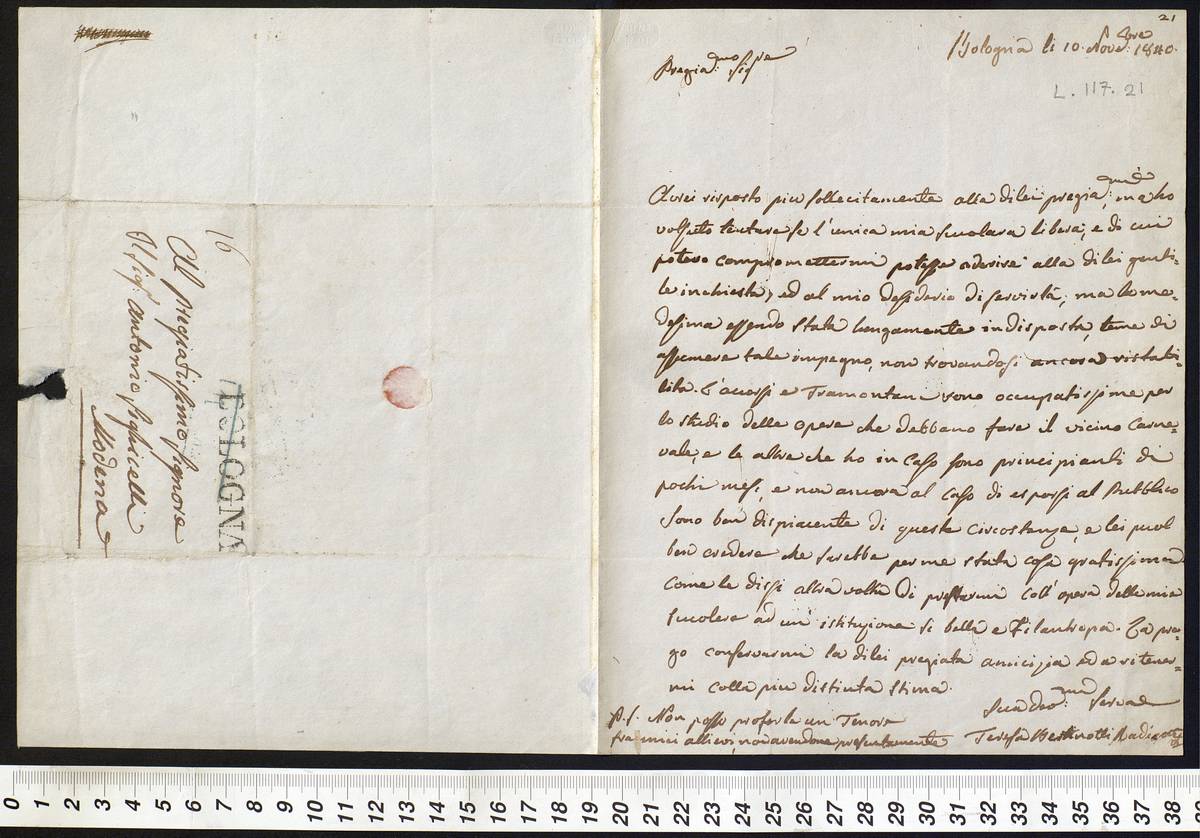 21
Bologna li 10. Novebre: 1840.
Pregiamo: Sigre
L. 117. 21
Avrei risposto più sollecitamente alla di lei pregiama:, ma ho
voluto tentare se l'unica mia scuolara libera, e di cui
potevo compromettermi potesse aderire alla di lei genti-
le inchiesta, ed al mio desiderio di servirla; ma la me-
desima essendo stata lungamente indisposta, teme di
assumere tale impegno, non trovandosi ancora ristabi-
lita. L'accessi e Tramontani sono occupatissime per
lo studio delle opere che debbano fare il vicino Carne-
vale, e le altre che ho in Casa sono principianti di
pochi mesi, e non ancora al Caso di esporsi al Pubblico
Sono ben dispiacente di queste Circostanze, e lei puol
ben credere che sarebbe per me stata cosa gratissima
come le dissi altra volta di prestarmi coll'opera delle mie
Scuolare ad un'istituzione sì bella e Filantropa. La pre-
go conservarmi la di lei pregiata amicizia ed a ritener-
mi colla più distinta stima.
Sua Devma: Serva
P.S. Non posso proferle un Tenore
fra miei allievi, non avendone presentamente
Teresa Bertinotti Radicati
16
Al Pregiatissimo Signore
Il Sigr. Antonio Sighicelli
Modena
BOLOGNA